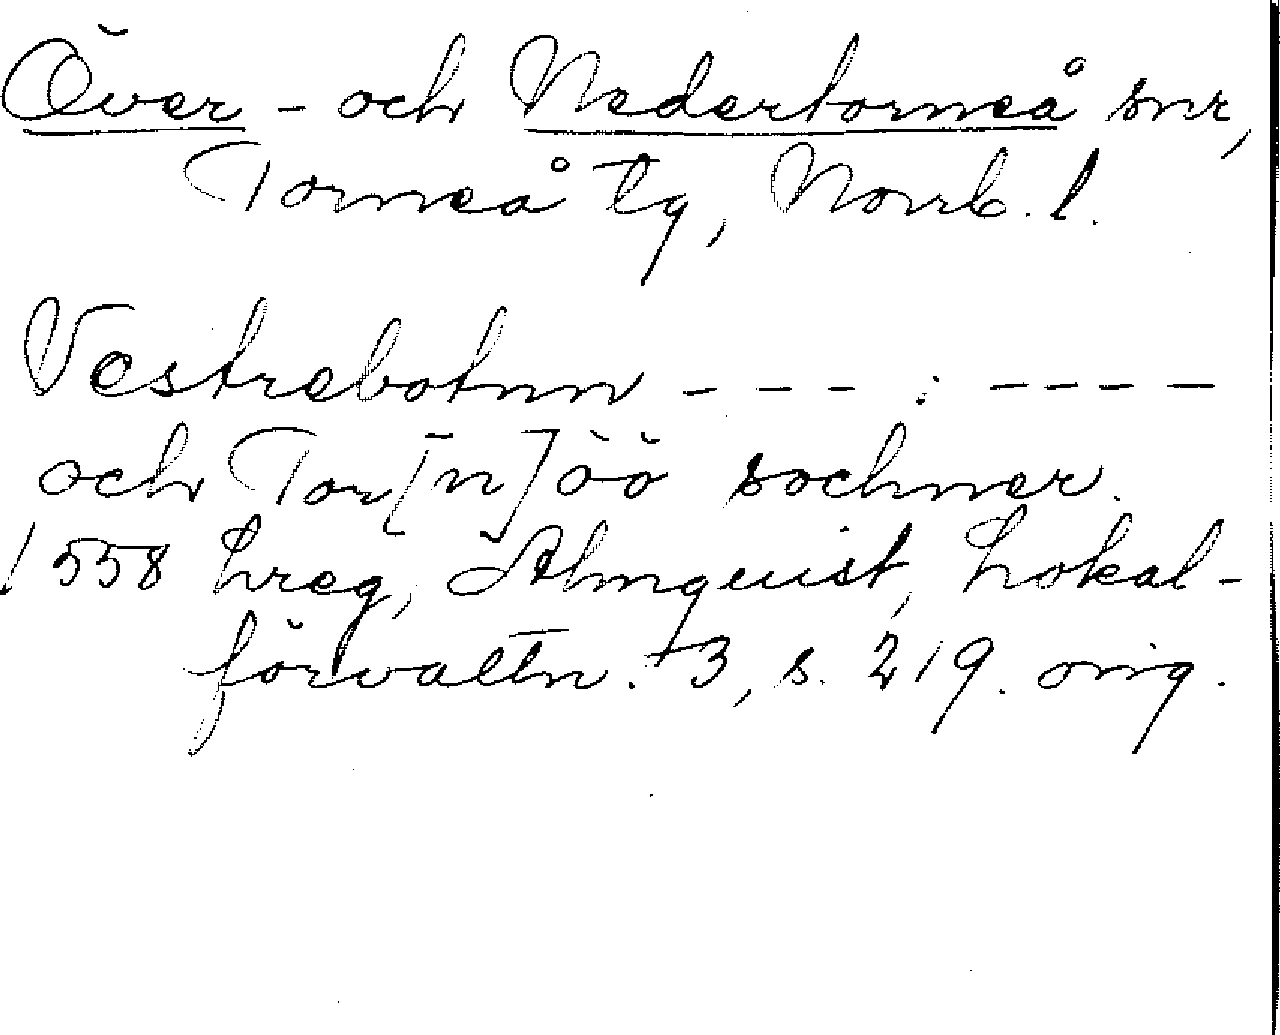 Över- och Nedertorneå snr,
Torneå tg, Norrb. l.
Vestrebotnn - - - : - - - -
och Tor[n]öö sochner.
1558 Lreg, Almquist, Lokal-
förvaltn. 3, s. 219. orig.